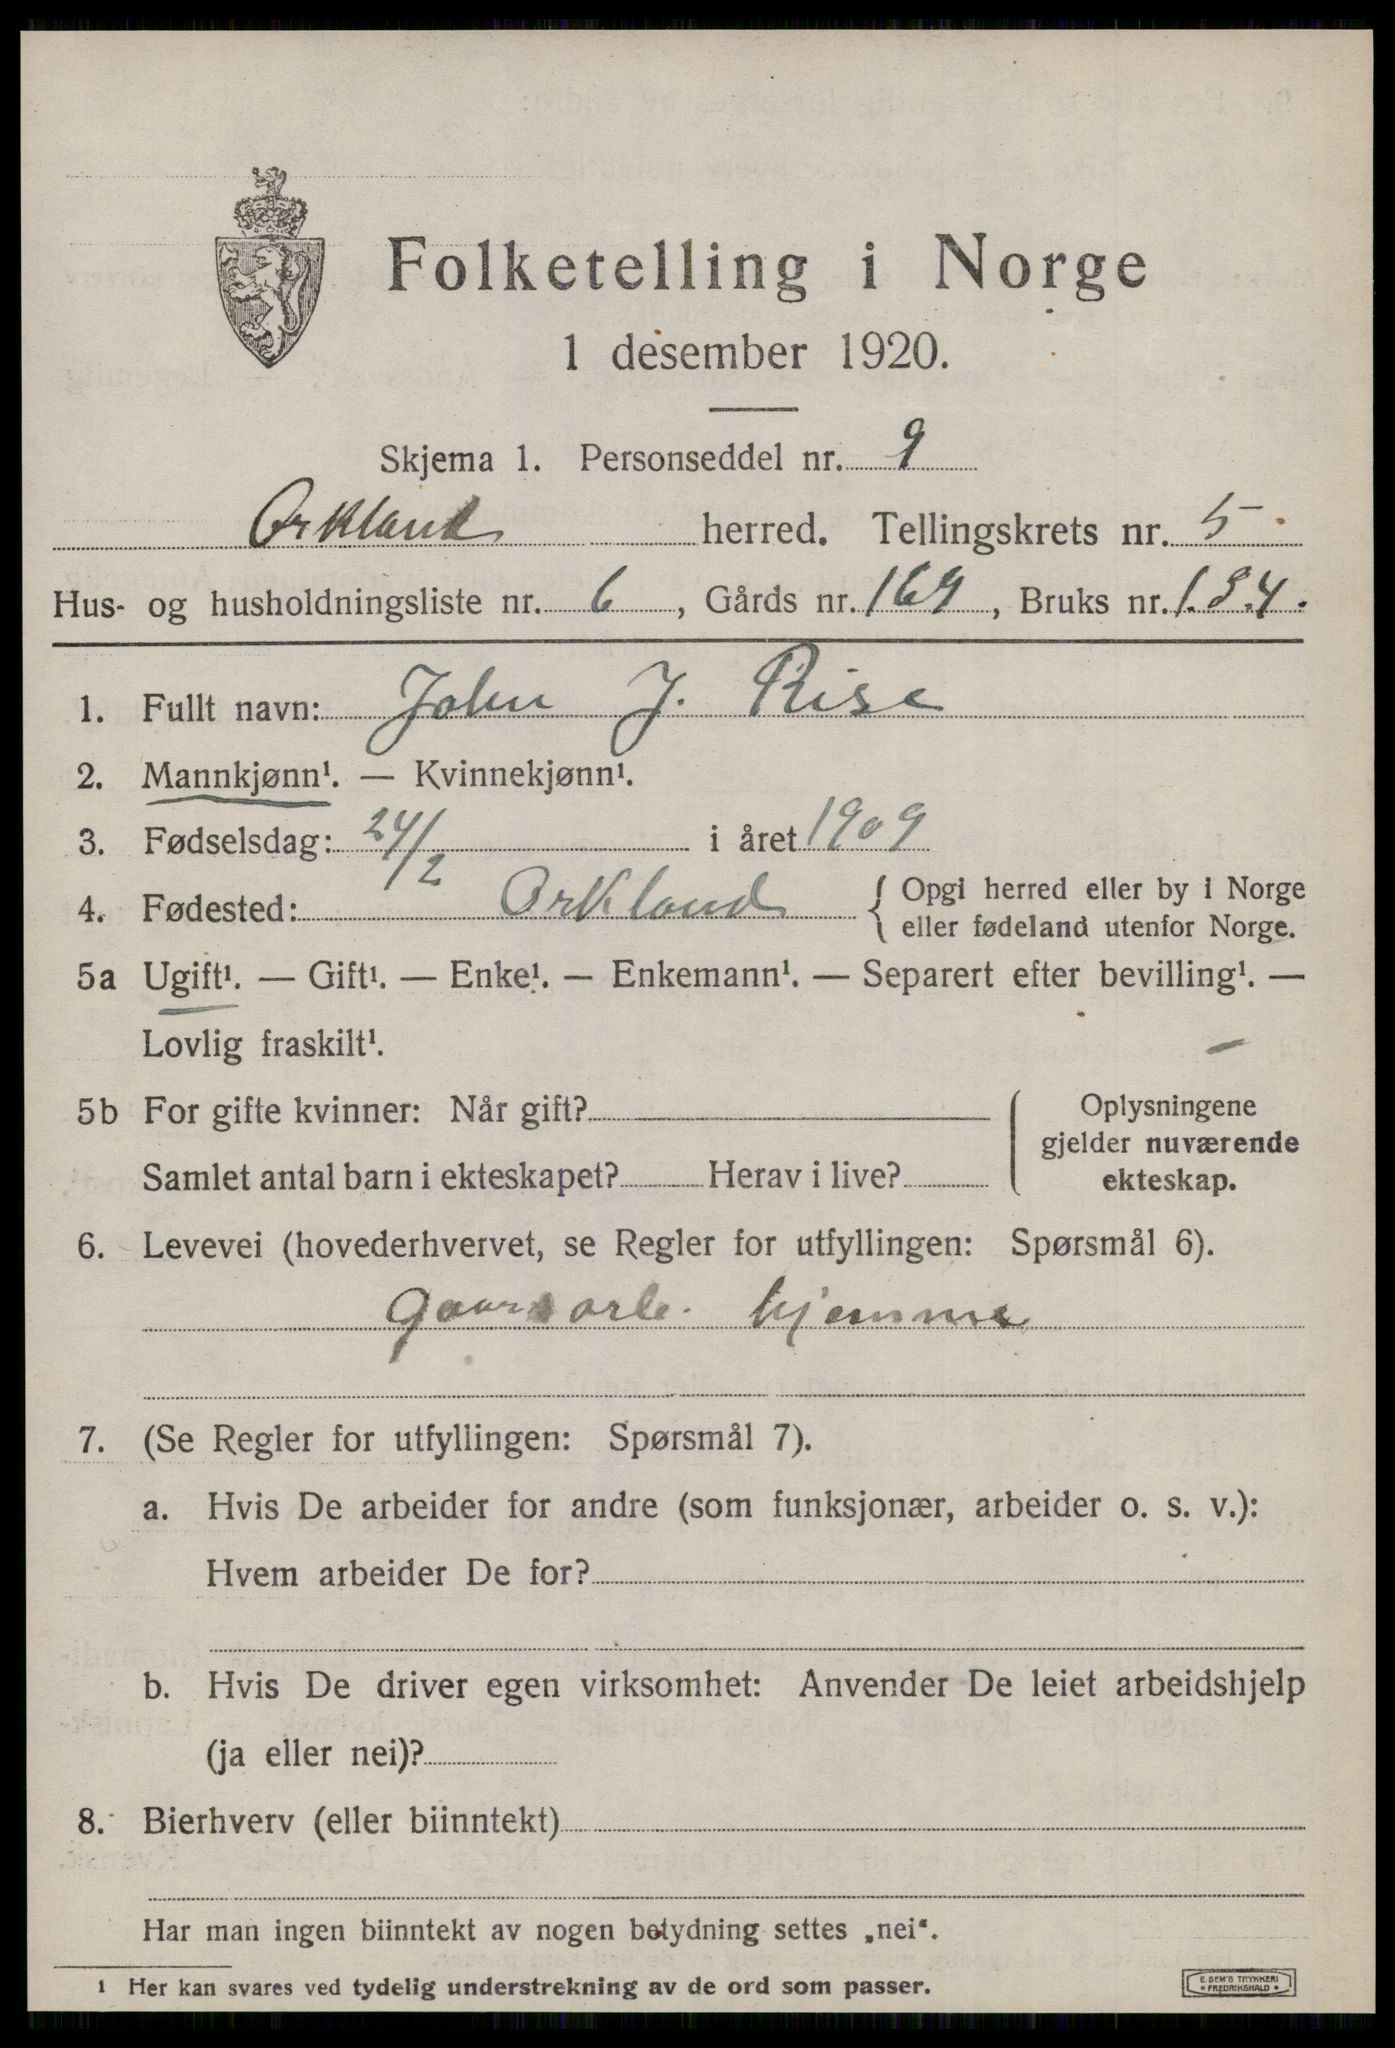 Folketelling i Norge
1 desember 1920.
Skjema 1. Personseddel nr. 9
Orkland herred. Tellingskrets nr. 5
Hus- og husholdningsliste nr. 6, Gårds nr. 169, Bruks nr. 1.3.4.
1. Fullt navn: John J. Rise
2. Mannkjønn¹. — Kvinnekjønn¹.
3. Fødselsdag: 24/2 i året 1909
4. Fødested: Orkland { Opgi herred eller by i Norge
eller fødeland utenfor Norge.
5a Ugift¹. — Gift¹. — Enke¹. — Enkemann¹. — Separert efter bevilling¹. —
Lovlig fraskilt¹. —
5b For gifte kvinner: Når gift? Oplysningene
gjelder nuværende
Samlet antal barn i ekteskapet? Herav i live? ekteskap.
6. Levevei (hovederhvervet, se Regler for utfyllingen: Spørsmål 6).
Gaarsarb. hjemme
7. (Se Regler for utfyllingen: Spørsmål 7).
a. Hvis De arbeider for andre (som funksjonær, arbeider o. s. v.):
Hvem arbeider De for?
b. Hvis De driver egen virksomhet: Anvender De leiet arbeidshjelp
(ja eller nei)?
8. Bierhverv (eller biinntekt)
Har man ingen biinntekt av nogen betydning settes „nei“.
1 Her kan svares ved tydelig understrekning av de ord som passer.
E. SEM'S TRYKKERI
FREDRIKSHALD